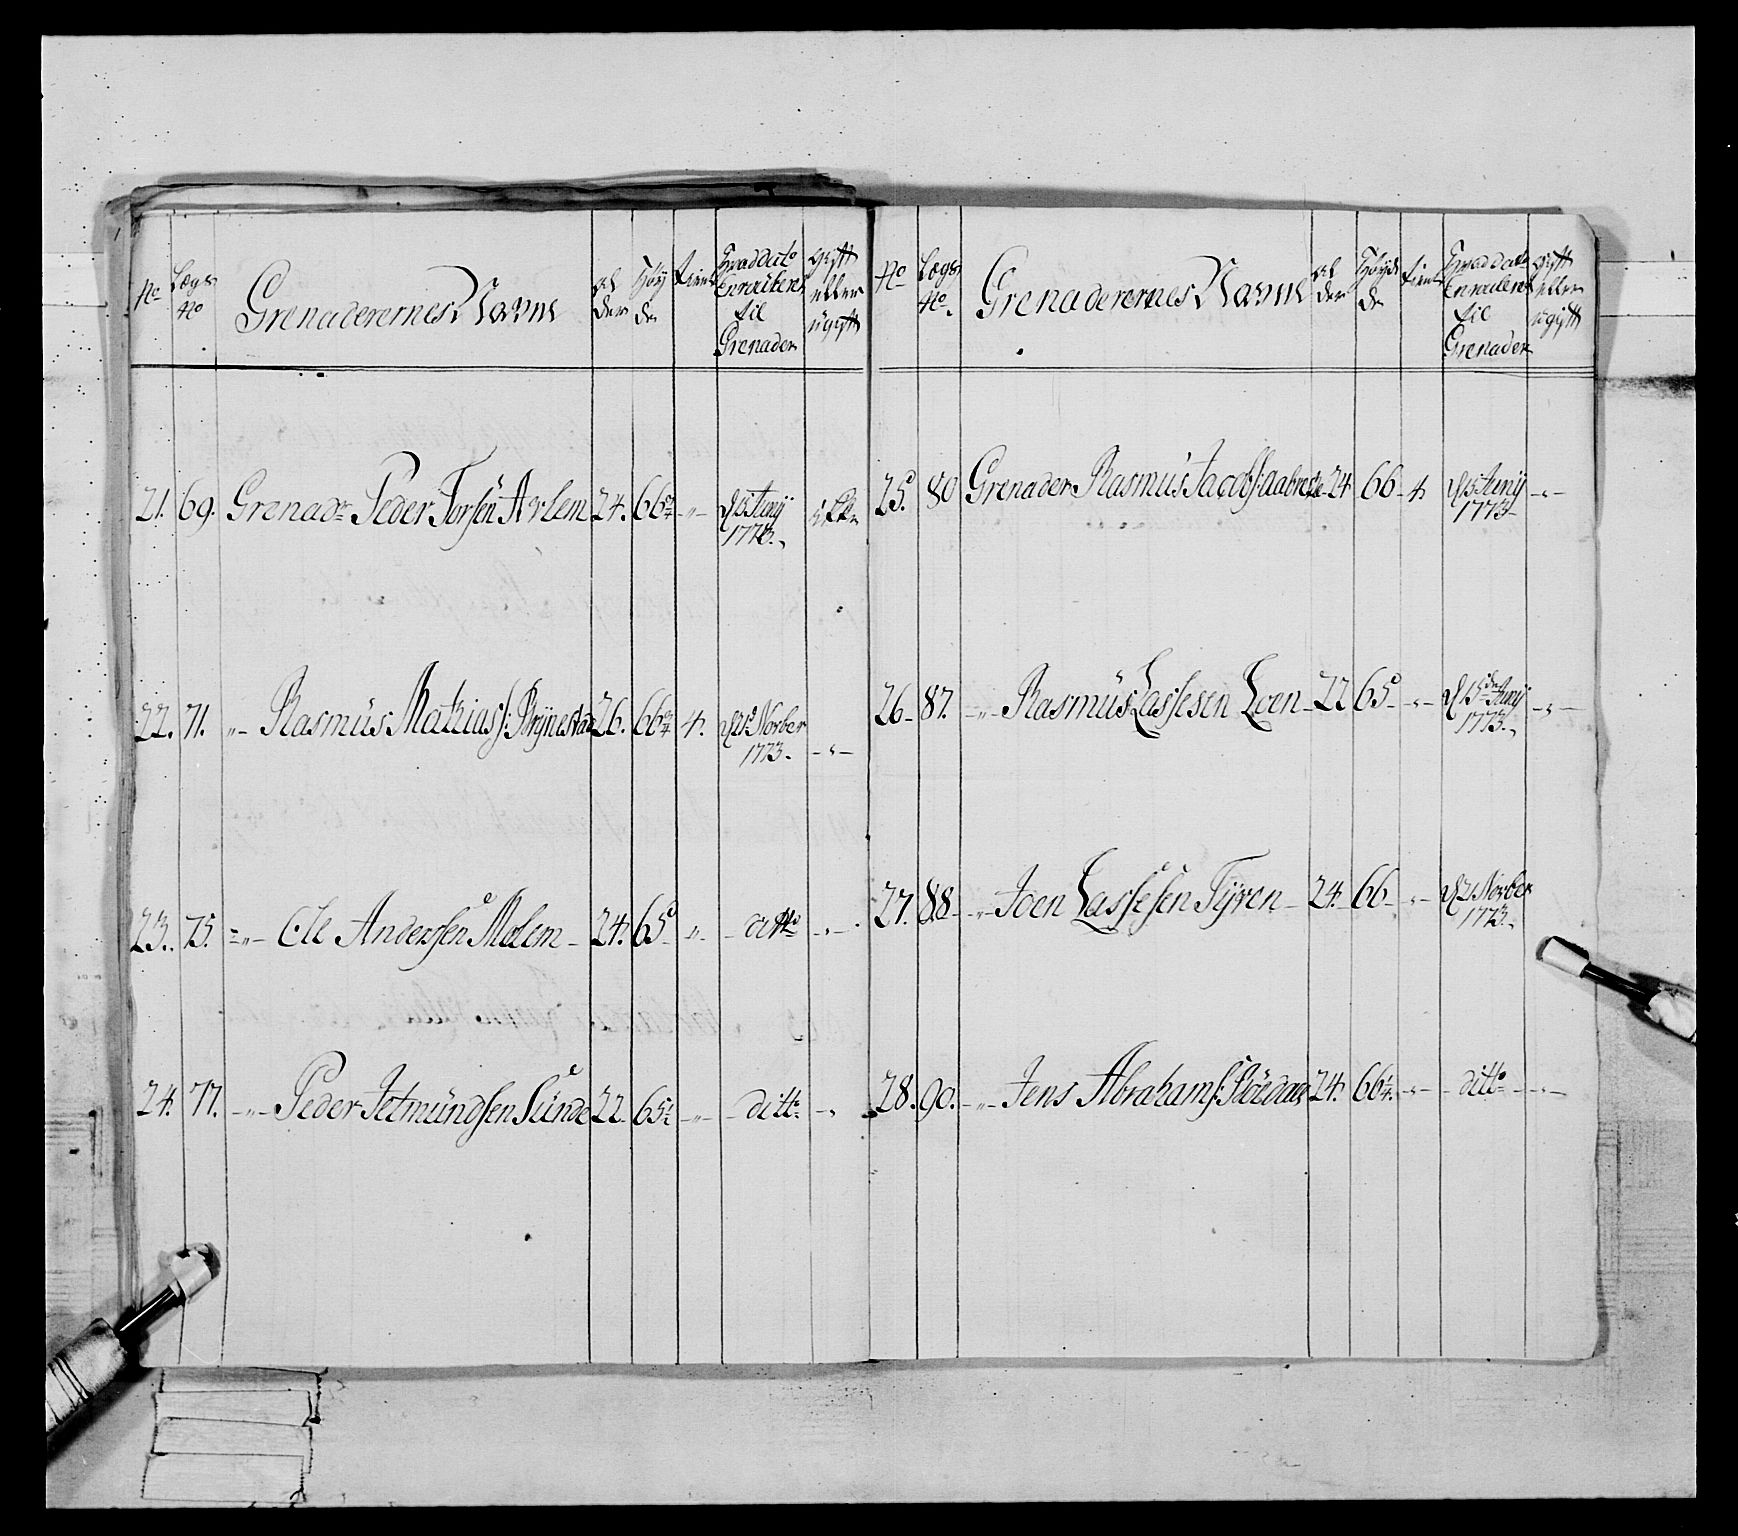 No
Lægs No
Grenaderernes Navne
al der
Høy de
tient
Hvad dato Enroulleret til Grenader
gift eller ugift
21. 69. Grenadr Peder Torsen Arlem 24. 66 - „ - d 15 Junij 1773. ikke
22. 71. „ - Rasmus Mathias: Brynestad 26. 66 4. d 21 Novber 1773. - „ -
23. 75. - „ - Ole Andersen Molem - 24. 65 „ - ditto - „ -
24. 77. - „ - Peder Jetmundsen Sunde 22 65 - „ - ditto - „
No
Lægs No.
Grenaderernes Navne
al der
Høyde
tient
Hvad dato Enroulleret til Grenader
gift eller ugift
25. 80 Grenader Rasmus Jacobs: Aabrek 24 66 - 4 d 15 Junij 1773 - „ -
26 - 87. - „ - Rasmus Lassesen Loen - 22 65 - „ - d 15de Junij 1773. - „ -
27. 88 - „ - Joen Lassesen Tyven - 24. 66 - „ - d 21 Novber 1773.
28. 90. - „ - Jens Abrahams: 24. 66 1/4. - „ - ditto - „ -